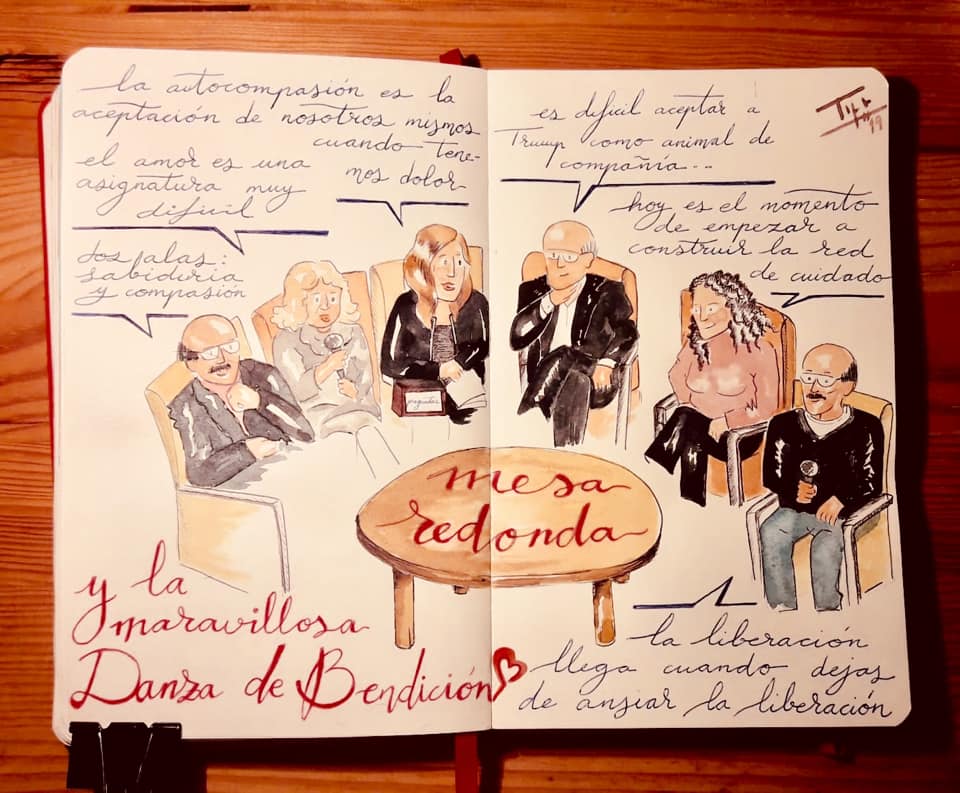 la autocompasión es la
aceptación de nosotros mismos
cuando tene-
mos dolor
el amor es una
asignatura muy
difícil
dos alas:
sabiduría
y compasión
es difícil aceptar a
Trump como animal de
compañía...
hoy es el momento
de empezar a
construir la red
de cuidado
preguntas
mesa
redonda
y la
maravillosa
Danza de Bendición
la liberación
llega cuando dejas
de ansiar la liberación
19